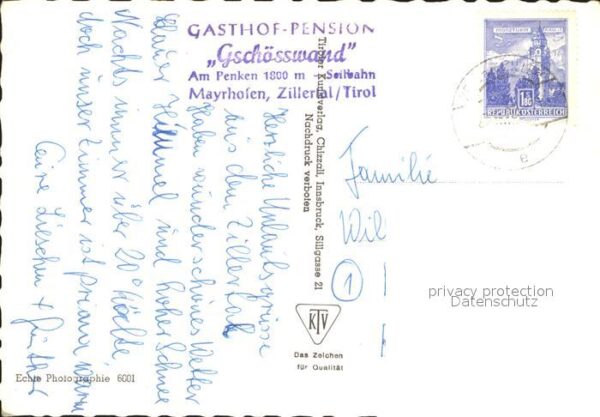 GASTHOF-PENSION
„Gschösswand"
Am Penken 1800 m - Seilbahn
Mayrhofen, Zillertal/Tirol
Herzliche Urlaubsgrüsse
aus dem Zillertal
haben wunderschönes Wetter
blauer Himmel und hoher Schnee
Nachts immer über 20° Kälte
doch unser Zimmer ist prima warm
Eure Lieschen + Günther
Echte Photographie 6001
Tiroler Kunstverlag, Chizzali, Innsbruck, Sillgasse 21
Nachdruck verboten
KTV
Das Zeichen
für Qualität
S
1.80
REPUBLIK ÖSTERREICH
e
Familie
Wil
1
privacy protection
Datenschutz